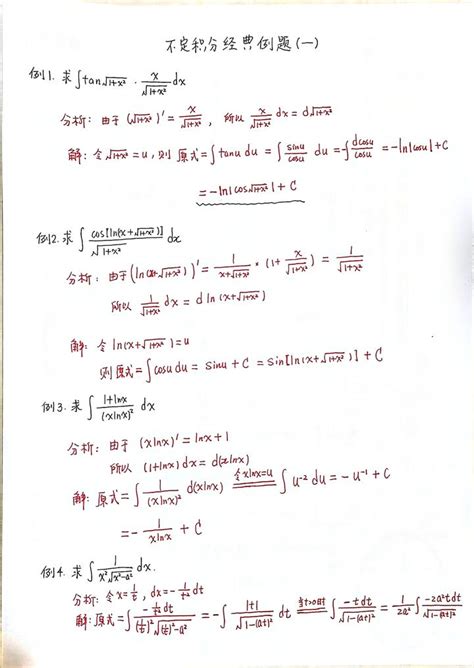 不定积分经典例题(一)
例1. 求 ∫tan√(1+x²) · x/√(1+x²) dx
分析: 由于 (√(1+x²))′ = x/√(1+x²), 所以 x/√(1+x²) dx = d√(1+x²)
解: 令√(1+x²) = u, 则 原式 = ∫tanu du = ∫ sinu/cosu du = -∫ dcosu/cosu = -ln|cosu| + C
= -ln|cos√(1+x²)| + C
例2. 求 ∫ cos[ln(x+√(1+x²))]/√(1+x²) dx
分析: 由于 (ln(x+√(1+x²)))′ = 1/(x+√(1+x²)) * (1+ x/√(1+x²)) = 1/√(1+x²)
所以 1/√(1+x²) dx = d ln(x+√(1+x²))
解: 令 ln(x+√(1+x²)) = u
则 原式 = ∫cosu du = sinu + C = sin[ln(x+√(1+x²))] + C
例3. 求 ∫ (1+lnx)/(xlnx)² dx
分析: 由于 (xlnx)′ = lnx + 1
所以 (1+lnx) dx = d(xlnx)
解: 原式 = ∫ 1/(xlnx)² d(xlnx) 令xlnx=u ∫ u⁻² du = -u⁻¹ + C
= - 1/(xlnx) + C
例4. 求 ∫ 1/(x²√(x²-a²)) dx.
分析: 令 x = 1/t, dx = -1/t² dt
解: 原式 = ∫ (-1/t² dt)/((1/t)²√((1/t)²-a²)) = -∫ |t|/√(1-(at)²) dt 当t>0时 ∫ -t dt/√(1-(at)²) = 1/2a² ∫ -2a²t dt/√(1-(at)²)